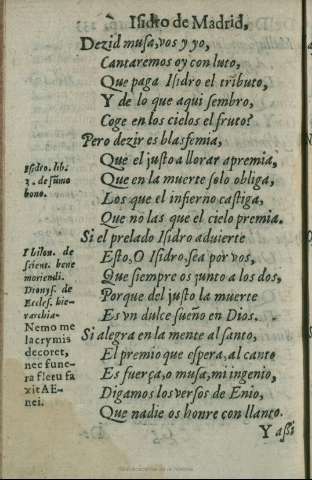 Isidro de Madrid,
Dezid musa, vos y yo,
Cantaremos oy con luto,
Que paga Isidro el tributo,
Y de lo que aqui sembro,
Coge en los cielos el fruto?
Pero dezir es blasfemia,
Que el justo a llorar apremia,
Que en la muerte solo obliga,
Los que el infierno castiga,
Que no las que el cielo premia.
Si el prelado Isidro aduierte
Esto, O Isidro, sea por vos,
Que siempre os junto a los dos,
Porque del justo la muerte
Es vn dulce sueño en Dios.
Si alegra en la mente al santo,
El premio que espera, al canto
Es fuerça, o musa, mi ingenio,
Digamos los versos de Enio,
Que nadie os honre con llanto.
Y assi
Isidro. lib.
2. de sũmo
bono.
de
scient. bene
moriendi.
Dionys. de
Eccles. hie-
rarchia.
Nemo me
lacrymis
decoret,
nec fune-
ra fletu fa
xit AE-
nei.